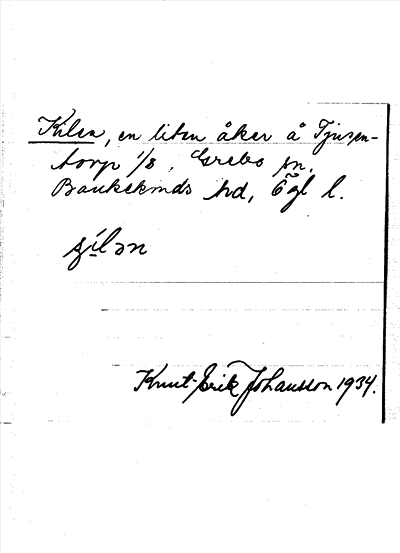 Kilen, en liten åker å Tjusen-
torp 1/8, Grebo sn,
Bankekinds hd, Ögl l.
ꞩílən
Knut-Erik Johansson 1934.